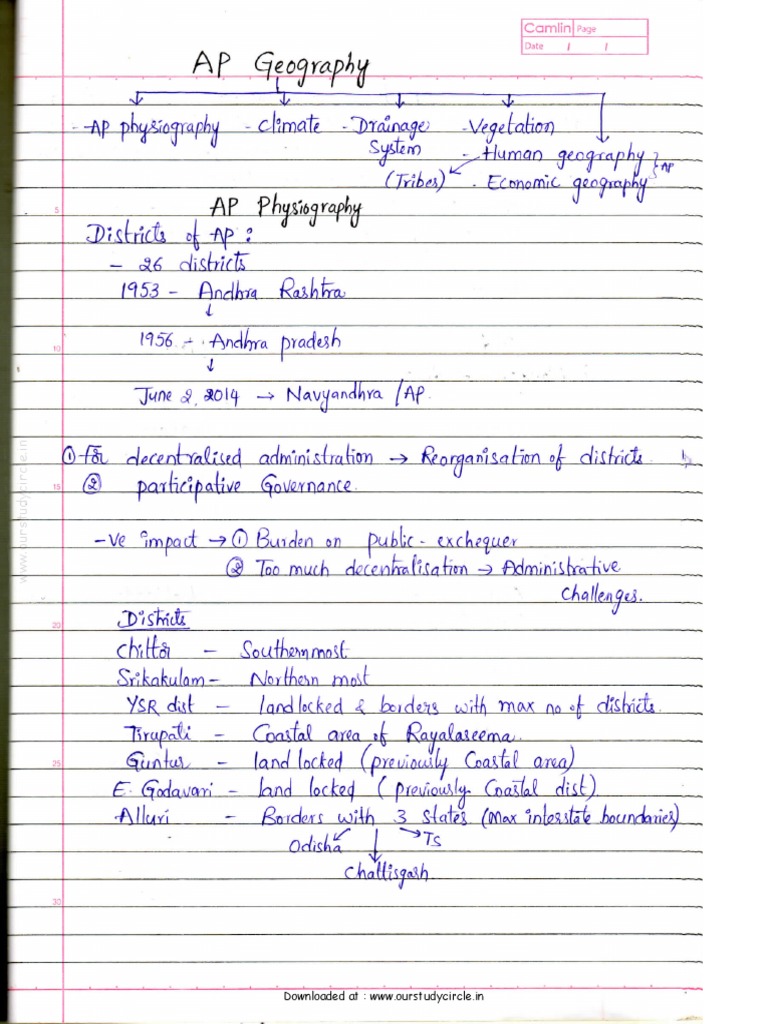 Camlin Page
Date / /
AP Geography
- AP physiography - Climate - Drainage System - Vegetation
- Human geography } AP
(Tribes) - Economic geography
AP Physiography
Districts of AP :
- 26 districts
1953 - Andhra Rashtra
↓
1956 - Andhra pradesh
↓
June 2, 2014 → Navyandhra / AP.
① for decentralised administration → Reorganisation of districts
② participative Governance.
-ve impact → ① Burden on public - exchequer
② Too much decentralisation → Administrative
Challenges.
Districts
Chittor - Southernmost
Srikakulam - Northern most
YSR dist - landlocked & borders with max no of districts.
Tirupati - Coastal area of Rayalaseema.
Guntur - land locked (previously Coastal area)
E. Godavari - land locked (previously Coastal dist)
Alluri - Borders with 3 states (Max interstate boundaries)
Odisha TS
Chattisgash
5
10
15
20
25
30
www.ourstudycircle.in
Downloaded at : www.ourstudycircle.in